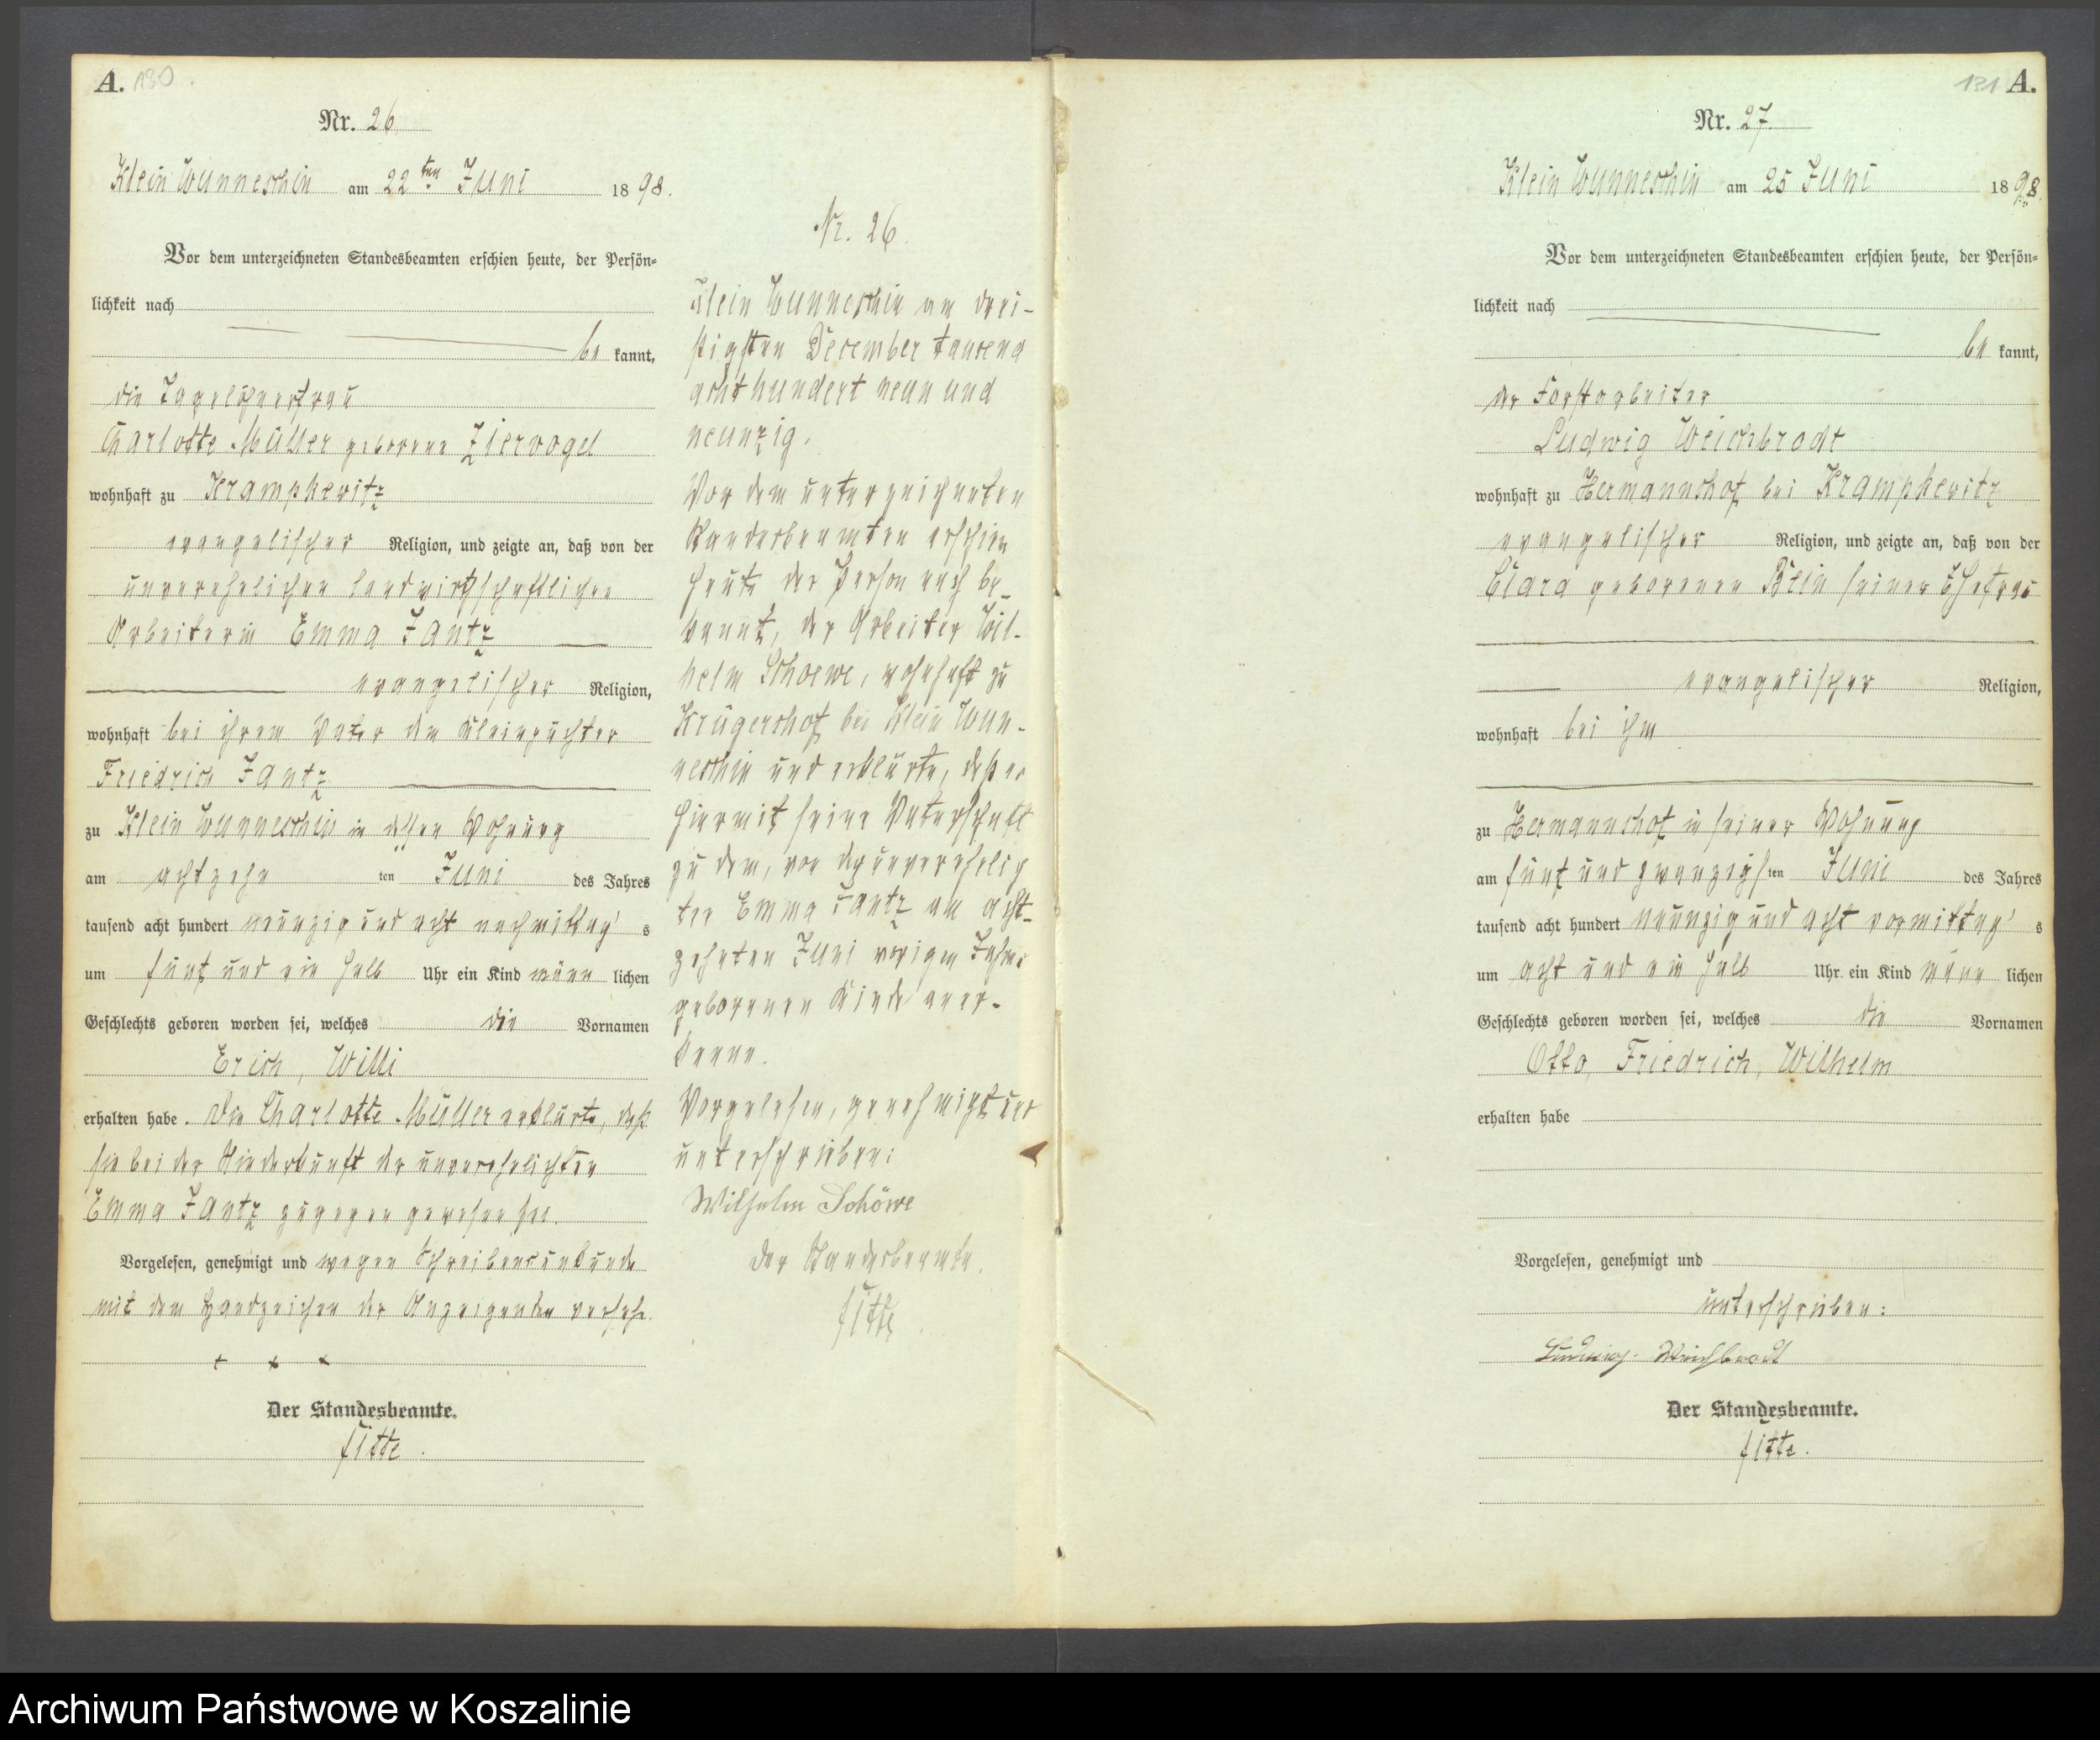 A. 130.
Nr. 26.
Klein Wunneschin am 22ten Juni 1898.
Vor dem unterzeichneten Standesbeamten erschien heute, der Persön=
lichkeit nach
be kannt,
die Tagelöhnerfrau
Charlotte Müller geborene Ziervogel
wohnhaft zu Krampkewitz
evangelischer Religion, und zeigte an, daß von der
unverehelichten landwirthschaftlichen
Arbeiterin Emma Jantz
evangelischer Religion,
wohnhaft bei ihrem Vater dem Kleinpächter
Friedrich Jantz
zu Klein Wunneschin in dessen Wohnung
am achtzehn ten Juni des Jahres
tausend acht hundert neunzig und acht nachmittag's
um fünf und ein halb Uhr ein Kind männ lichen
Geschlechts geboren worden sei, welches die Vornamen
Erich, Willi
erhalten habe. Die Charlotte Müller erklärte, daß
sie bei der Niederkunft der unverehelichten
Emma Jantz zugegen gewesen sei.
Vorgelesen, genehmigt und wegen Schreibensunkunde
mit dem Handzeichen der Anzeigenden verseh.
+ + +
Der Standesbeamte.
Fitte.
Nr. 26.
Klein Wunneschin am drei-
ßigsten December tausend
achthundert neun und
neunzig.
Vor dem unterzeichneten
Standesbeamten erschien
heute der Person nach be-
kannt, der Arbeiter Wil-
helm Schoewe, wohnhaft zu
Krügershof bei Klein Wun-
neschin und erklärte, daß er
hiermit seine Vaterschaft
zu dem, von der unverehelich
ten Emma Jantz am acht-
zehnten Juni vorigen Jahres
geborenen Kinde aner-
kenne.
Vorgelesen, genehmigt und
unterschrieben:
Wilhelm Schöwe
Der Standesbeamte.
Fitte
131 A.
Nr. 27.
Klein Wunneschin am 25 Juni 1898.
Vor dem unterzeichneten Standesbeamten erschien heute, der Persön=
lichkeit nach
be kannt,
der Forstarbeiter
Ludwig Weichbrodt
wohnhaft zu Hermannshof bei Krampkewitz
evangelischer Religion, und zeigte an, daß von der
Clara geborenen Bein seiner Ehefrau
evangelischer Religion,
wohnhaft bei ihm
zu Hermannshof in seiner Wohnung
am fünf und zwanzigsten Juni des Jahres
tausend acht hundert neunzig und acht vormittag's
um acht und ein halb Uhr ein Kind männ lichen
Geschlechts geboren worden sei, welches die Vornamen
Otto, Friedrich, Wilhelm
erhalten habe
Vorgelesen, genehmigt und
unterschrieben:
Ludwig Weichbrodt
Der Standesbeamte.
Fitte.
Archiwum Państwowe w Koszalinie